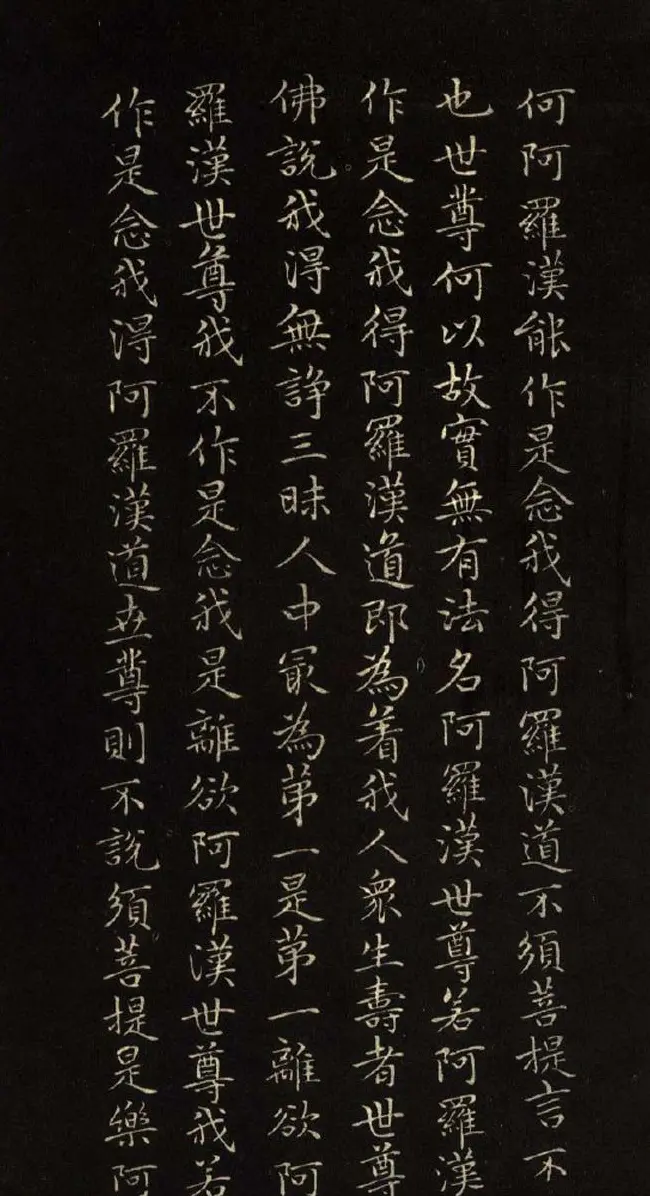 何阿羅漢能作是念我得阿羅漢道不須菩提言不
也世尊何以故實無有法名阿羅漢世尊若阿羅漢
作是念我得阿羅漢道即為着我人眾生壽者世尊
佛說我淂無諍三昧人中冣為第一是第一離欲阿
羅漢世尊我不作是念我是離欲阿羅漢世尊我若
作是念我淂阿羅漢道世尊則不說須菩提是樂阿